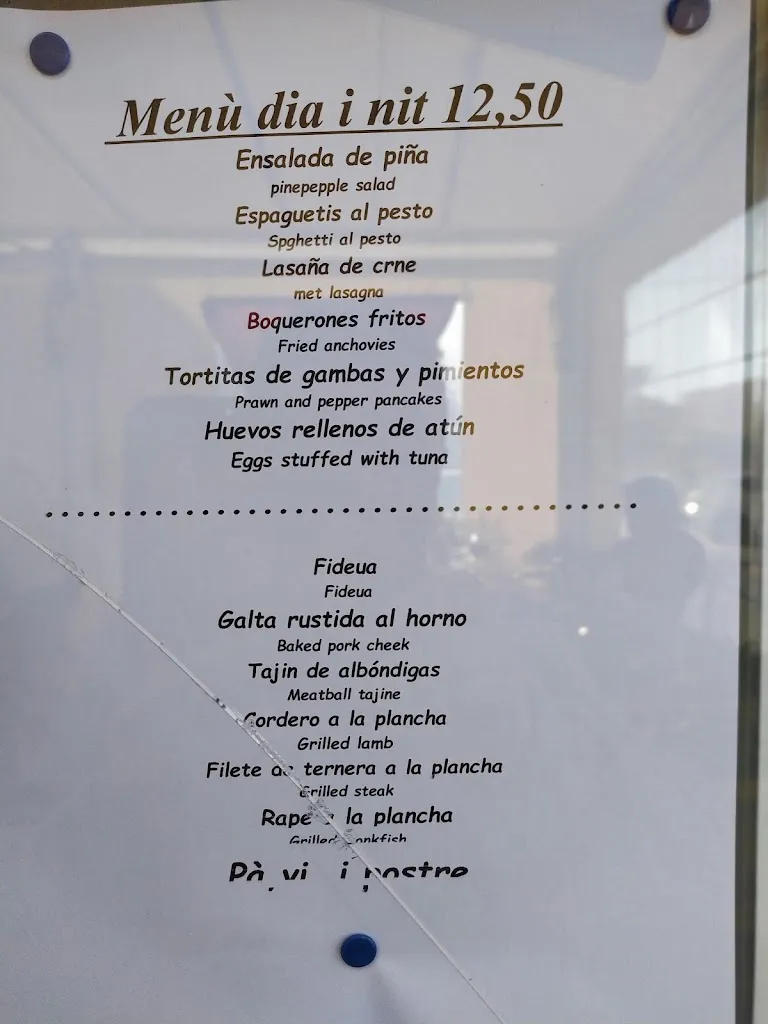 Menù dia i nit 12,50
Ensalada de piña
pinepepple salad
Espaguetis al pesto
Spghetti al pesto
Lasaña de crne
met lasagna
Boquerones fritos
Fried anchovies
Tortitas de gambas y pimientos
Prawn and pepper pancakes
Huevos rellenos de atún
Eggs stuffed with tuna
Fideua
Fideua
Galta rustida al horno
Baked pork cheek
Tajin de albóndigas
Meatball tajine
Cordero a la plancha
Grilled lamb
Filete de ternera a la plancha
Grilled steak
Rape a la plancha
Grilled monkfish
Pà, vi i postre